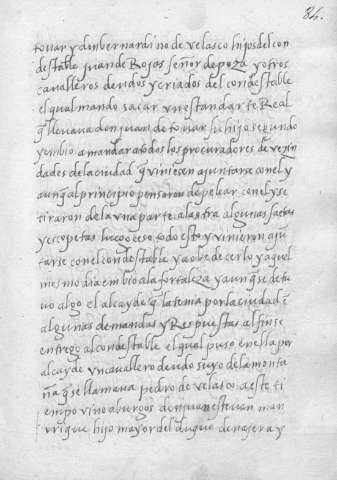 84.
tovar y don bernardino de velasco hijos del con
destable juan de Rojas señor de poza y otros
cavalleros deudos y criados del condestable
el qual mando sacar un estandarte Real
q̃ llevava don juan de tovar su hijo segundo
y enbio a mandar a todos los procuradores de vezin
dades de la ciudad q̃ viniesen a juntarse con el y
aunq̃ al principio pensaron de pelear con el y se
tiraron de la una parte a la otra algunas saetas
y escopetas luego ceso todo esto y vinieron a jũ
tarse con el condestable y a obedecerlo y aquel
mesmo dia enbio a la fortaleza y aunq̃ se detu
vo algo el alcayde q̃ la tenia por la ciudad ẽ
algunas demandas y Respuestas al fin se
entrego al condestable el qual puso en ella por
alcayde un cavallero deudo suyo de la monta
ña q̃ se llamava pedro de velasco a este ti
empo vino a burgos don juan estevan man
rrique hijo mayor del duque de najera y